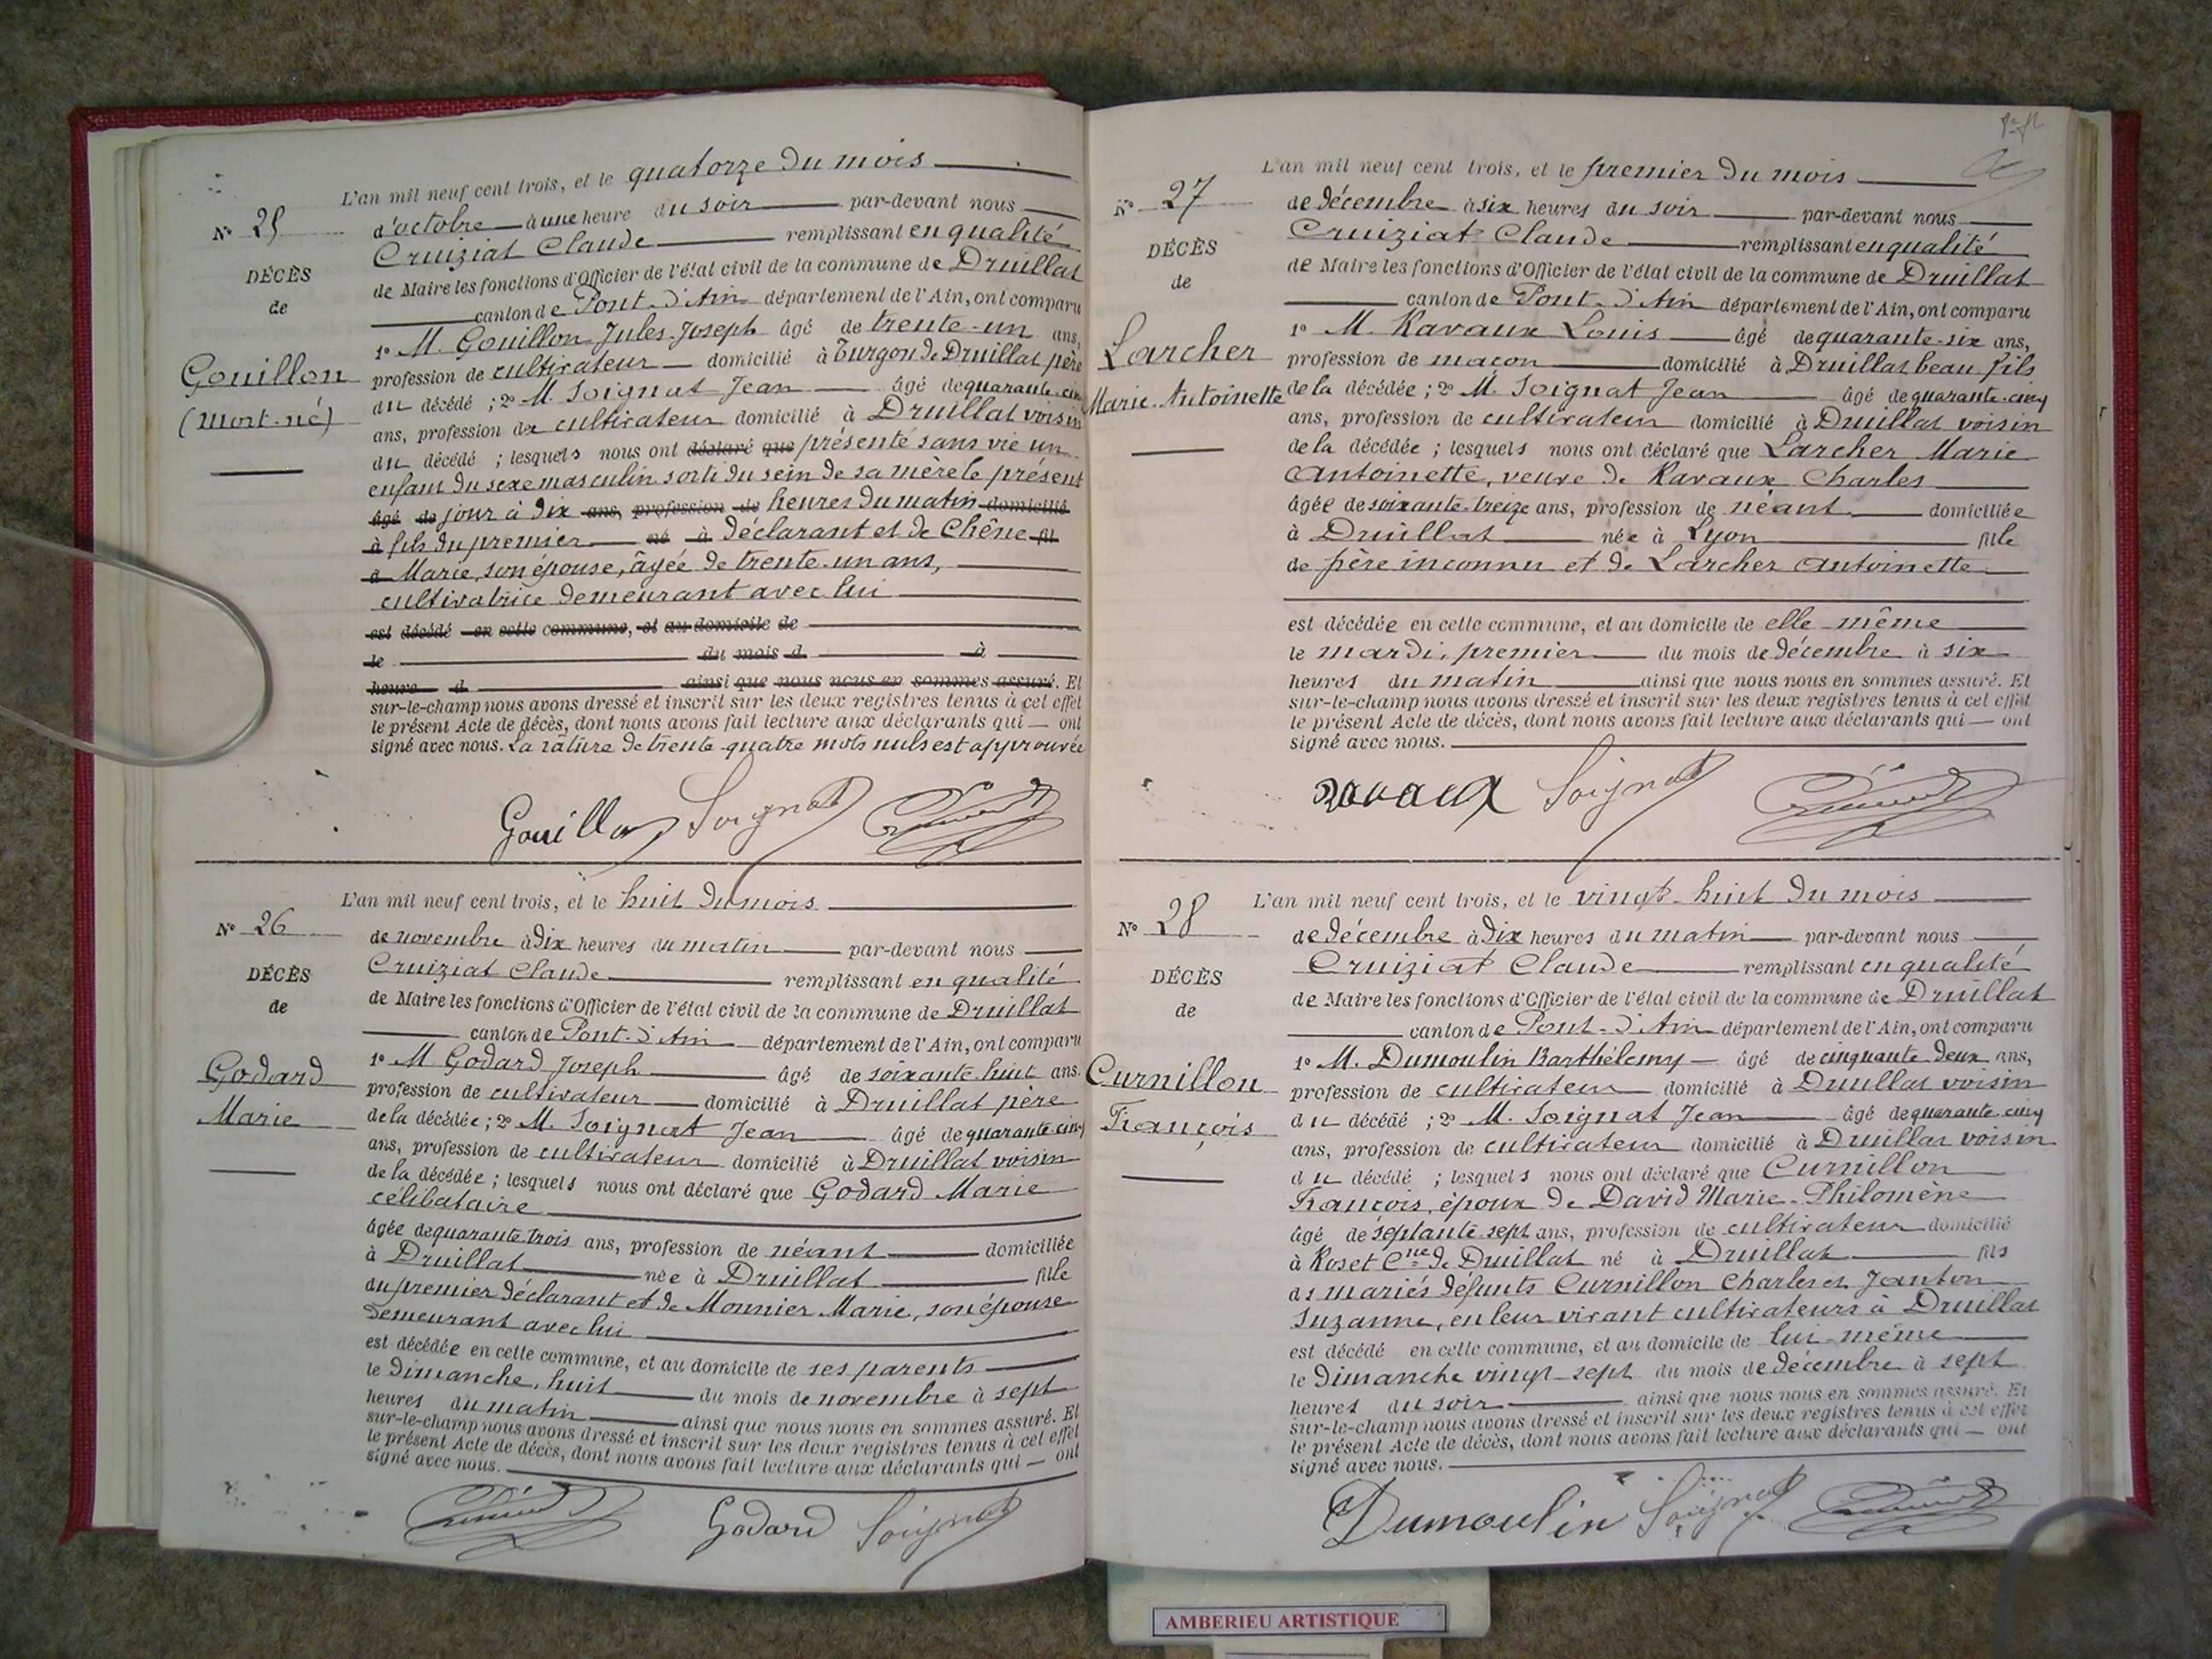 L'an mil neuf cent trois, et le quatorze du mois
N° 25
d'octobre à une heure du soir par-devant nous
Cruiziat Claude remplissant en qualité
DÉCÈS
de Maire les fonctions d'Officier de l'état civil de la commune de Druillat
de
canton de Pont-d'Ain département de l'Ain, ont comparu
1° M. Gouillon Jules Joseph âgé de trente-un ans,
Gouillon
profession de cultivateur domicilié à Turgon de Druillat père
(Mort-né)
du décédé ; 2° M. Soignat Jean âgé de quarante-cinq
ans, profession de cultivateur domicilié à Druillat voisin
du décédé ; lesquels nous ont déclaré que présenté sans vie un
enfant du sexe masculin sorti du sein de sa mère le présent
âgé de jour à dix ans, profession de heures du matin domicilié
à fils du premier né à déclarant et de Chêne fil
a Marie, son épouse, âgée de trente-un ans,
cultivatrice demeurant avec lui
est décédé en cette commune, et au domicile de
le du mois d à
heure d ainsi que nous nous en sommes assuré. Et
sur-le-champ nous avons dressé et inscrit sur les deux registres tenus à cet effet
le présent Acte de décès, dont nous avons fait lecture aux déclarants qui ont
signé avec nous. La râture de trente-quatre mots nuls est approuvée
Gouillon Soignat
L'an mil neuf cent trois, et le huit du mois
N° 26
de novembre à dix heures du matin par-devant nous
Cruiziat Claude remplissant en qualité
DÉCÈS
de Maire les fonctions d'Officier de l'état civil de la commune de Druillat
de
canton de Pont-d'Ain département de l'Ain, ont comparu
1° M Godard Joseph âgé de soixante-huit ans.
Godard
profession de cultivateur domicilié à Druillat père
Marie
de la décédée ; 2° M. Soignat Jean âgé de quarante-cinq
ans, profession de cultivateur domicilié à Druillat voisin
de la décédée ; lesquels nous ont déclaré que Godard Marie
célibataire
âgée de quarante-trois ans, profession de néant domiciliée
à Druillat née à Druillat fille
du premier déclarant et de Monnier Marie, son épouse
demeurant avec lui
est décédée en cette commune, et au domicile de ses parents
le dimanche, huit du mois de novembre à sept
heures du matin ainsi que nous nous en sommes assuré. Et
sur-le-champ nous avons dressé et inscrit sur les deux registres tenus à cet effet
le présent Acte de décès, dont nous avons fait lecture aux déclarants qui ont
signé avec nous.
Godard Soignat
L'an mil neuf cent trois, et le premier du mois
N° 27
de décembre à six heures du soir par-devant nous
Cruiziat Claude remplissant en qualité
DÉCÈS
de Maire les fonctions d'Officier de l'état civil de la commune de Druillat
de
canton de Pont-d'Ain département de l'Ain, ont comparu
1° M. Ravaux Louis âgé de quarante-six ans,
Larcher
profession de maçon domicilié à Druillat beau fils
Marie-Antoinette
de la décédée ; 2° M. Soignat Jean âgé de quarante-cinq
ans, profession de cultivateur domicilié à Druillat voisin
de la décédée ; lesquels nous ont déclaré que Larcher Marie
Antoinette, veuve de Ravaux Charles
âgée de soixante-treize ans, profession de néant domiciliée
à Druillat née à Lyon fille
de père inconnu et de Larcher Antoinette
est décédée en cette commune, et au domicile de elle-même
le mardi, premier du mois de décembre à six
heures du matin ainsi que nous nous en sommes assuré. Et
sur-le-champ nous avons dressé et inscrit sur les deux registres tenus à cet effet
le présent Acte de décès, dont nous avons fait lecture aux déclarants qui ont
signé avec nous.
Ravaux Soignat
L'an mil neuf cent trois, et le vingt-huit du mois
N° 28
de décembre à dix heures du matin par-devant nous
Cruiziat Claude remplissant en qualité
DÉCÈS
de Maire les fonctions d'Officier de l'état civil de la commune de Druillat
de
canton de Pont-d'Ain département de l'Ain, ont comparu
1° M. Dumoulin Barthélemy âgé de cinquante-deux ans,
Curnillon
profession de cultivateur domicilié à Druillat voisin
François
du décédé ; 2° M. Soignat Jean âgé de quarante-cinq
ans, profession de cultivateur domicilié à Druillat voisin
du décédé ; lesquels nous ont déclaré que Curnillon
François, époux de David Marie-Philomène
âgé de septante-sept ans, profession de cultivateur domicilié
à Roset Cne de Druillat né à Druillat fils
as mariés défunts Curnillon Charles et Janton
Suzanne, en leur vivant cultivateurs à Druillat
est décédé en cette commune, et au domicile de lui-même
le dimanche vingt-sept du mois de décembre à sept
heures du soir ainsi que nous nous en sommes assuré. Et
sur-le-champ nous avons dressé et inscrit sur les deux registres tenus à cet effet
le présent Acte de décès, dont nous avons fait lecture aux déclarants qui ont
signé avec nous.
Dumoulin Soignat
AMBERIEU ARTISTIQUE